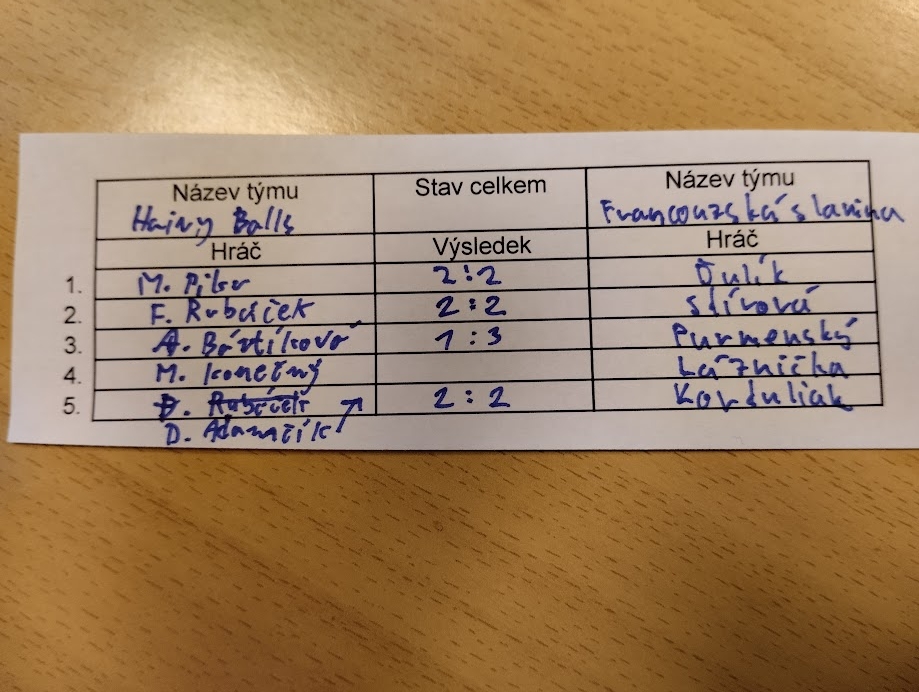 Název týmu Stav celkem Název týmu
Hairy Balls Francouzská slanina
Hráč Výsledek Hráč
1. M. 2:2 Ďulík
2. F. Rubáček 2:2 Slívová
3. A. Bártíková 1:3 Purmenský
4. M. Konečný Láznička
5. 2:2 Korduliak
D. Adamčík